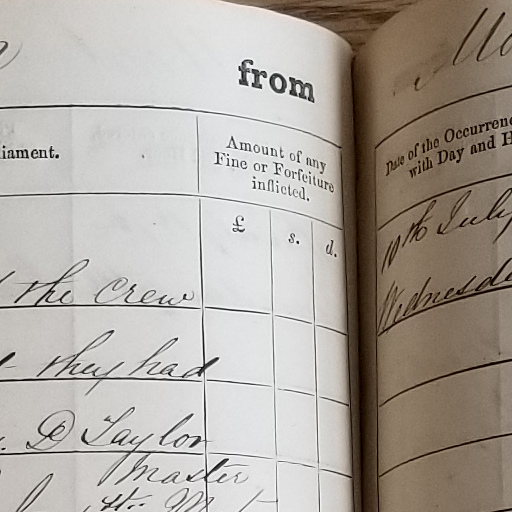 from
iament.
Amount of any
Fine or Forfeiture
inflicted.
£ s. d.
the crew
they had
D Taylor
Master
Date of the Occurrenc
with Day and H
10th July
Wednesda